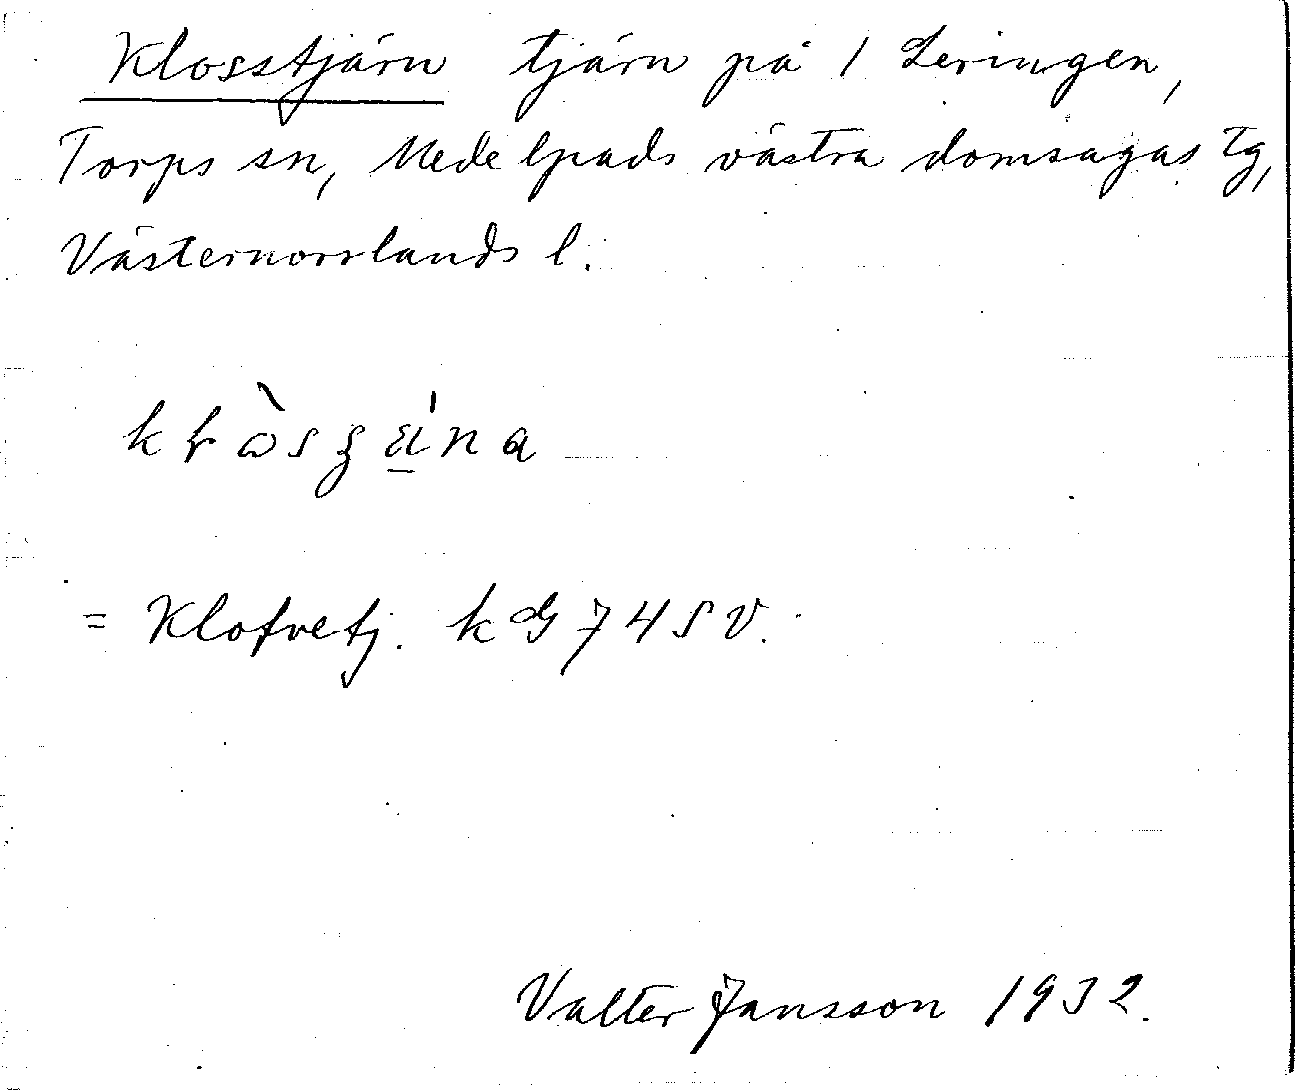 Klosstjärn tjärn på 1 Leringen,
Torps sn, Medelpads västra domsagas tg,
Västernorrlands l.
= Klofvetj. kG 74 SV.
Valter Jansson 1932.